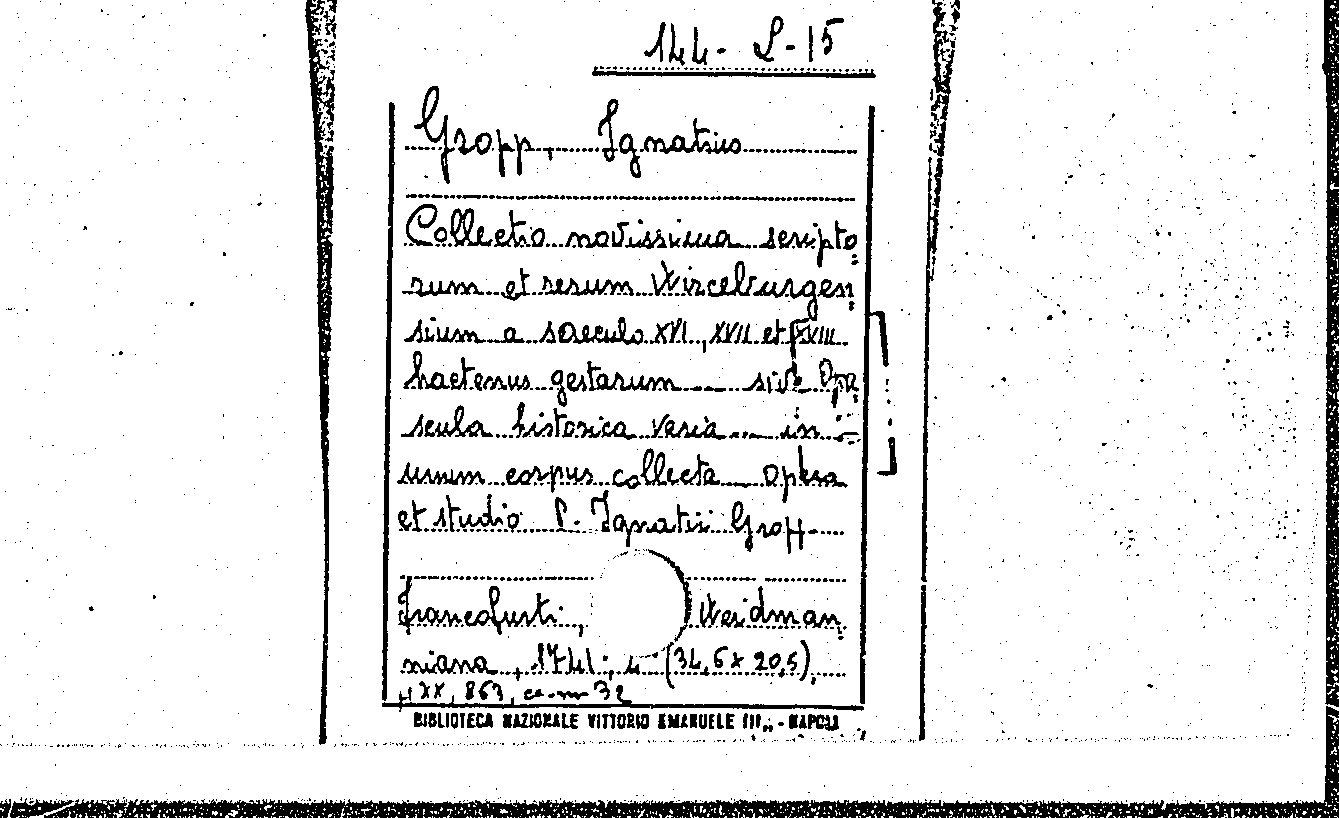 144- L-15
Gropp, Ignatius
Collectio novissima scripto
rum et rerum Wirceburgen
sium a saeculo XVI, XVII et XVIII
hactenus gestarum ... sive Opu
scula historica varia ... in
unum corpus collecta opera
et studio P. Ignatii Gropp.
Francofurti, Weidman
niana, 1741; (34,5 x 20,5),
XX, 863, 32
BIBLIOTECA NAZIONALE VITTORIO EMANUELE III„ - NAPOLI